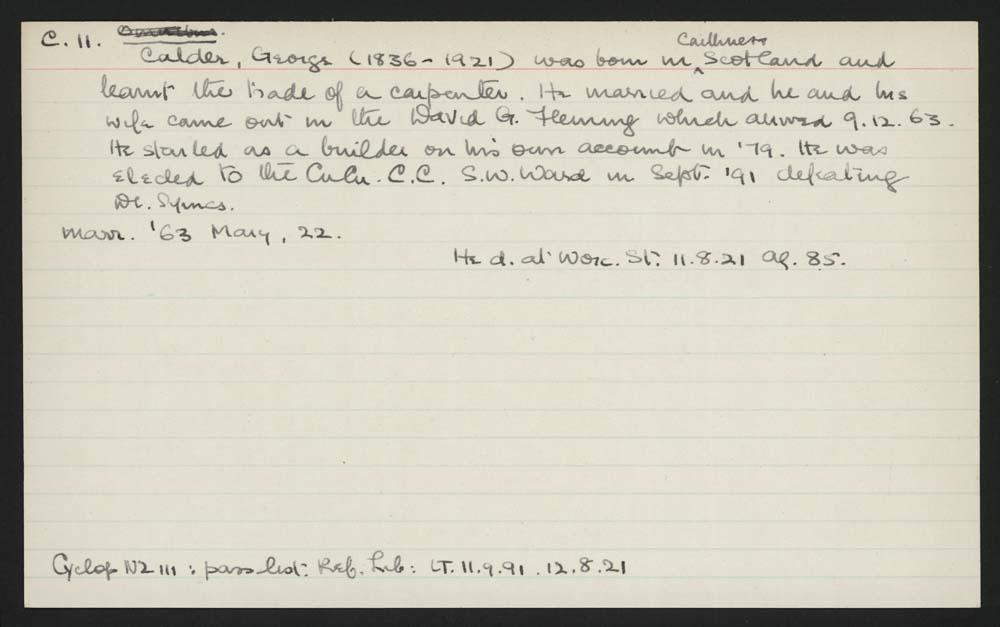 C. 11.
Caithness
Calder, George (1836-1921) was born in Scotland and
learnt the trade of a carpenter. He married and he and his
wife came out in the David G. Fleming which arrived 9.12.63.
He started as a builder on his own account in '79. He was
elected to the ChCh. C.C. S.W. Ward in Sept. '91 defeating
Dr. Symes.
marr. '63 Mary, 22.
He d. at Worc. St. 11.8.21 ag. 85.
Cyclop NZ 111 : pass list: Ref. Lib: LT. 11.9.91 . 12.8.21